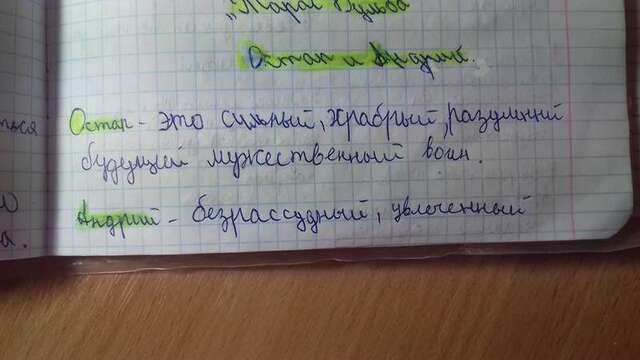 "Тарас Бульба"
Остап и Андрий.
Остап - это сильный, храбрый, разумный
будующий мужественный воин.
Андрий - безрассудный, увлеченный